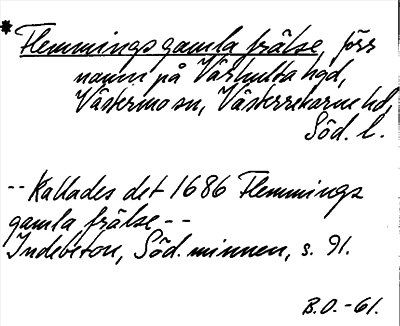 * Flemmings gamla frälse, förr
namn på Vårhulta hgd,
Västermo sn, Västerrekarne hd,
Söd. l.
-- Kallades det 1686 Flemmings
gamla frälse --
Indebetou, Söd. minnen, s. 91.
B.O. -61.